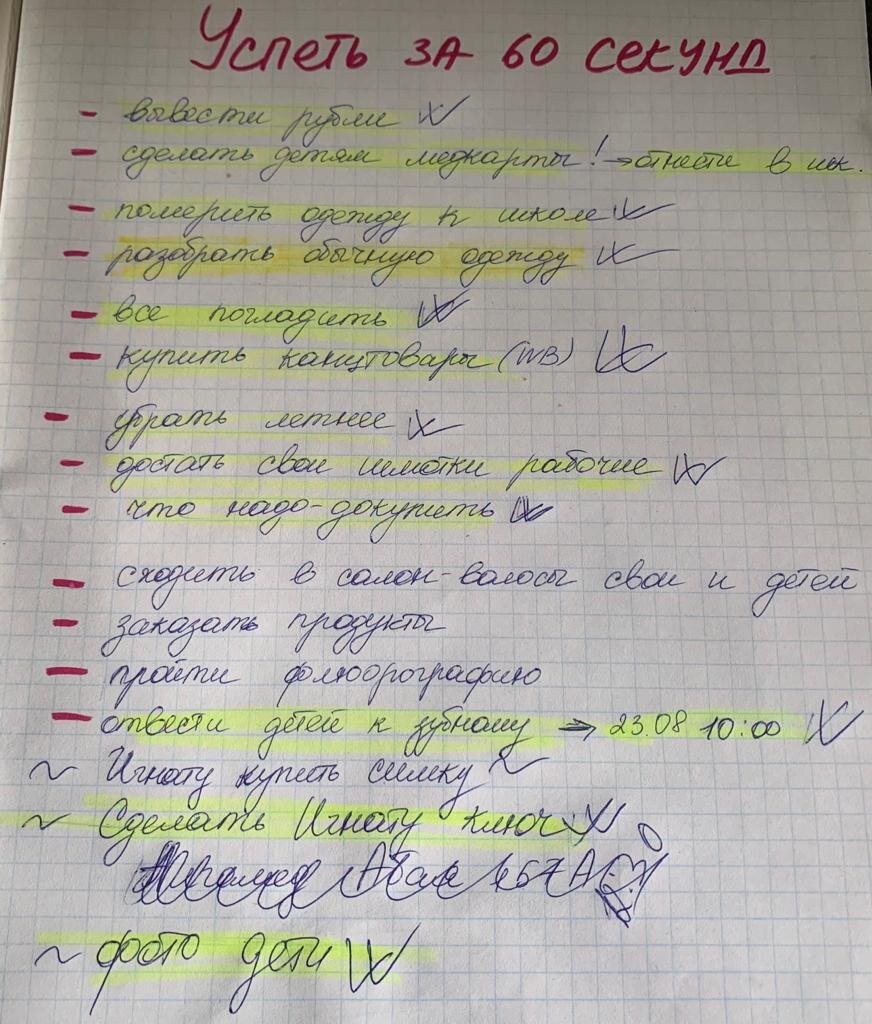 Успеть за 60 секунд
- вывести рубли
- сделать детям медкарты! → отнести в шк.
- померить одежду к школе
- разобрать обычную одежду
- все погладить
- купить канцтовары (WB)
- убрать летнее
- достать свои шмотки рабочие
- что надо-докупить
- сходить в салон-волосы свои и детей
- заказать продукты
- пройти флюорографию
- отвести детей к зубному → 23.08 10:00
~ Игнату купить симку ~
~ Сделать Игнату ключ
~ фото дети